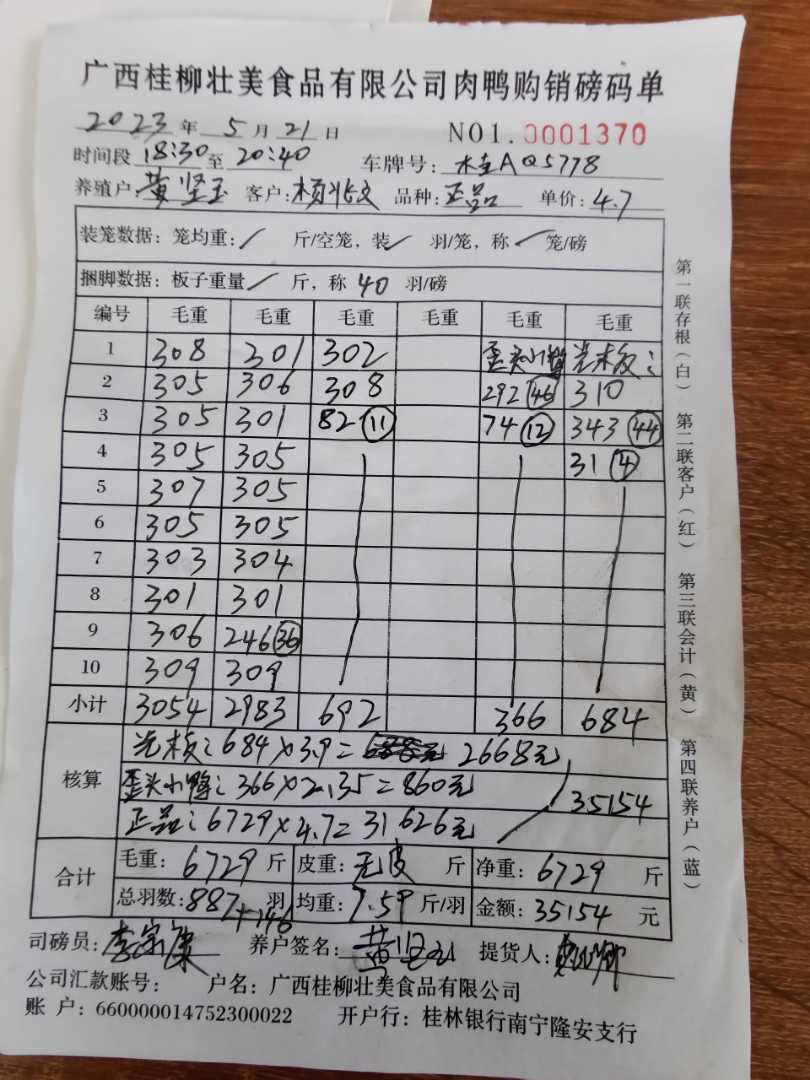 广西桂柳壮美食品有限公司肉鸭购销磅码单
2023年5月21日 NO1.0001370
时间段18:30至20:40 车牌号:桂AQ5778
养殖户:黄坚玉 客户:杨 品种:正品 单价:4.7
装笼数据:笼均重:/ 斤/空笼,装/ 羽/笼,称/ 笼/磅
捆脚数据:板子重量/ 斤,称40羽/磅
编号 毛重 毛重 毛重 毛重 毛重 毛重
1 308 301 302 歪头小鸭 光板:
2 305 306 308 292(46) 310
3 305 301 82(11) 74(12) 343(44)
4 305 305 31(4)
5 307 305
6 305 305
7 303 304
8 301 301
9 306 246(36)
10 309 309
小计 3054 2983 692 366 684
核算
光板:684×3.9= 2668元
歪头小鸭:366×2.35=860元
正品:6729×4.7=31626元
35154
合计 毛重:6729斤 皮重:无皮斤 净重:6729斤
总羽数:887+146羽 均重:7.59斤/羽 金额:35154元
司磅员:李 养户签名:黄坚玉 提货人:
公司汇款账号: 户名:广西桂柳壮美食品有限公司
账户:660000014752300022 开户行:桂林银行南宁隆安支行
第一联存根(白) 第二联客户(红) 第三联会计(黄) 第四联养户(蓝)